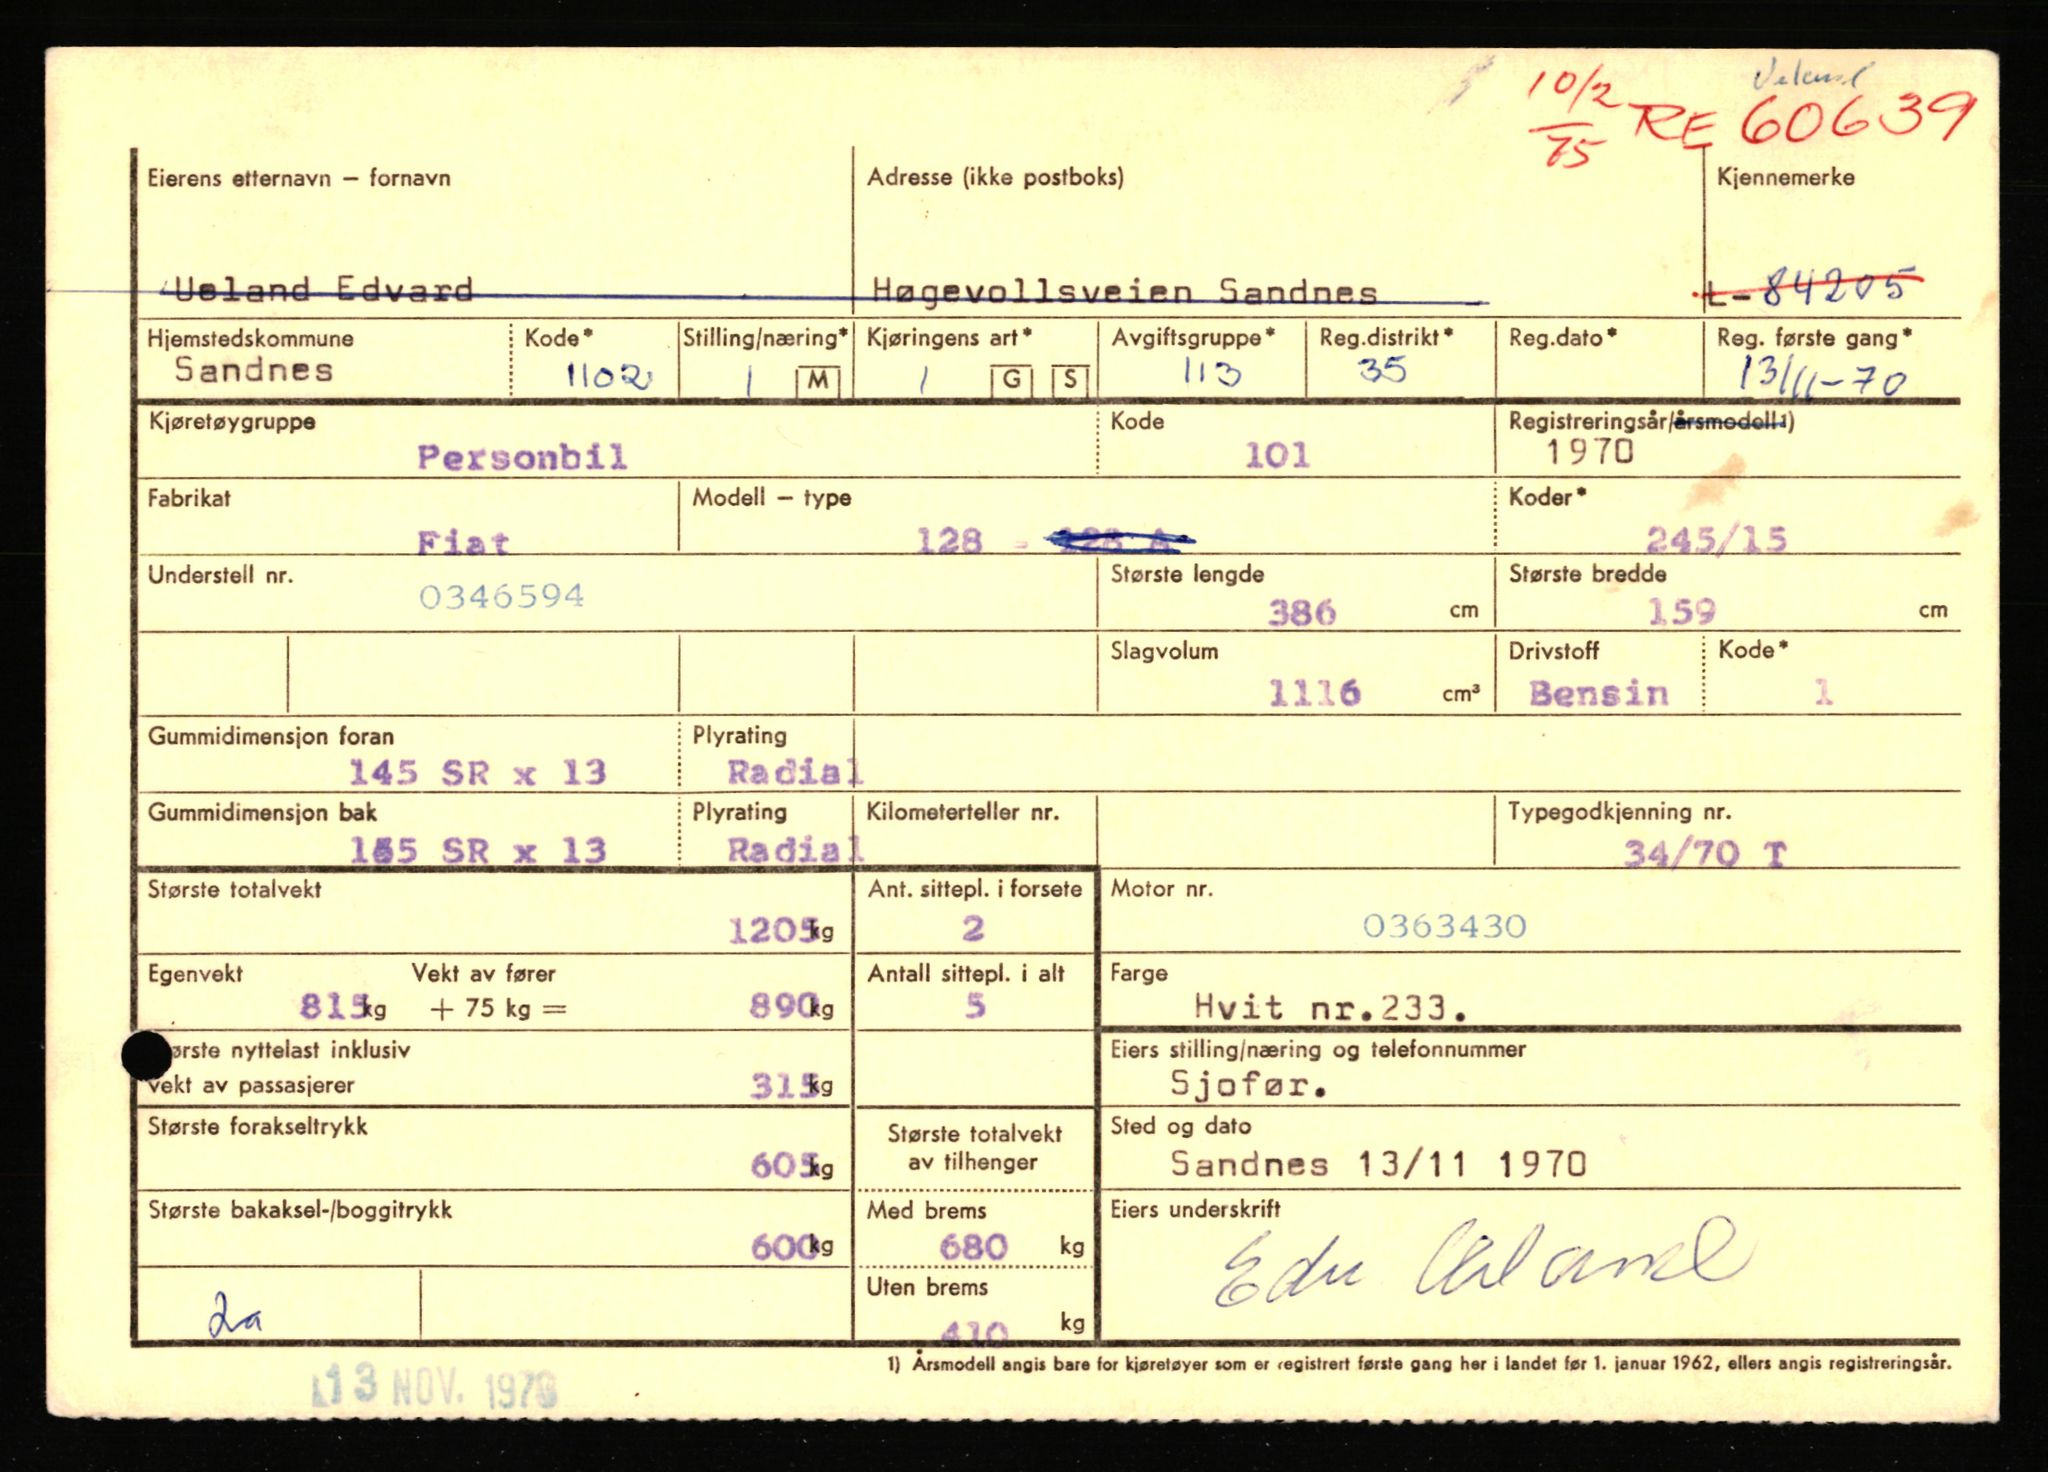 10/2 75 RE 60639
Eierens etternavn – fornavn Adresse (ikke postboks) Kjennemerke
Ueland Edvard Høgevollsveien Sandnes L- 84205
Hjemstedskommune Kode* Stilling/næring* Kjøringens art* Avgiftsgruppe* Reg.distrikt* Reg.dato* Reg. første gang*
Sandnes 1102 1 M 1 G S 113 35 13/11-70
Kjøretøygruppe Kode Registreringsår/årsmodell1)
Personbil 101 1970
Fabrikat Modell – type Koder*
Fiat 128 - 128 A 245/15
Understell nr. Største lengde Største bredde
0346594 386 cm 159 cm
Slagvolum Drivstoff Kode*
1116 cm³ Bensin 1
Gummidimensjon foran Plyrating
145 SR x 13 Radial
Gummidimensjon bak Plyrating Kilometerteller nr. Typegodkjenning nr.
SR x 13 Radial 34/70 T
Største totalvekt Ant. sittepl. i forsete Motor nr.
1205 kg 2 0363430
Egenvekt Vekt av fører Antall sittepl. i alt Farge
815 kg + 75 kg = 890 kg 5 Hvit nr.233.
ørste nyttelast inklusiv Eiers stilling/næring og telefonnummer
vekt av passasjerer 315 kg Sjofør.
Største forakseltrykk Største totalvekt av tilhenger Sted og dato
605 kg Sandnes 13/11 1970
Største bakaksel-/boggitrykk Med brems Eiers underskrift
600 kg 680 kg Edv Ueland
Uten brems
2a 410 kg
1) Årsmodell angis bare for kjøretøyer som er registrert første gang her i landet før 1. januar 1962, ellers angis registreringsår.
13 NOV. 1970